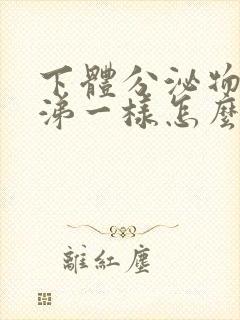 下體分泌物
涕一樣怎麼
離紅塵